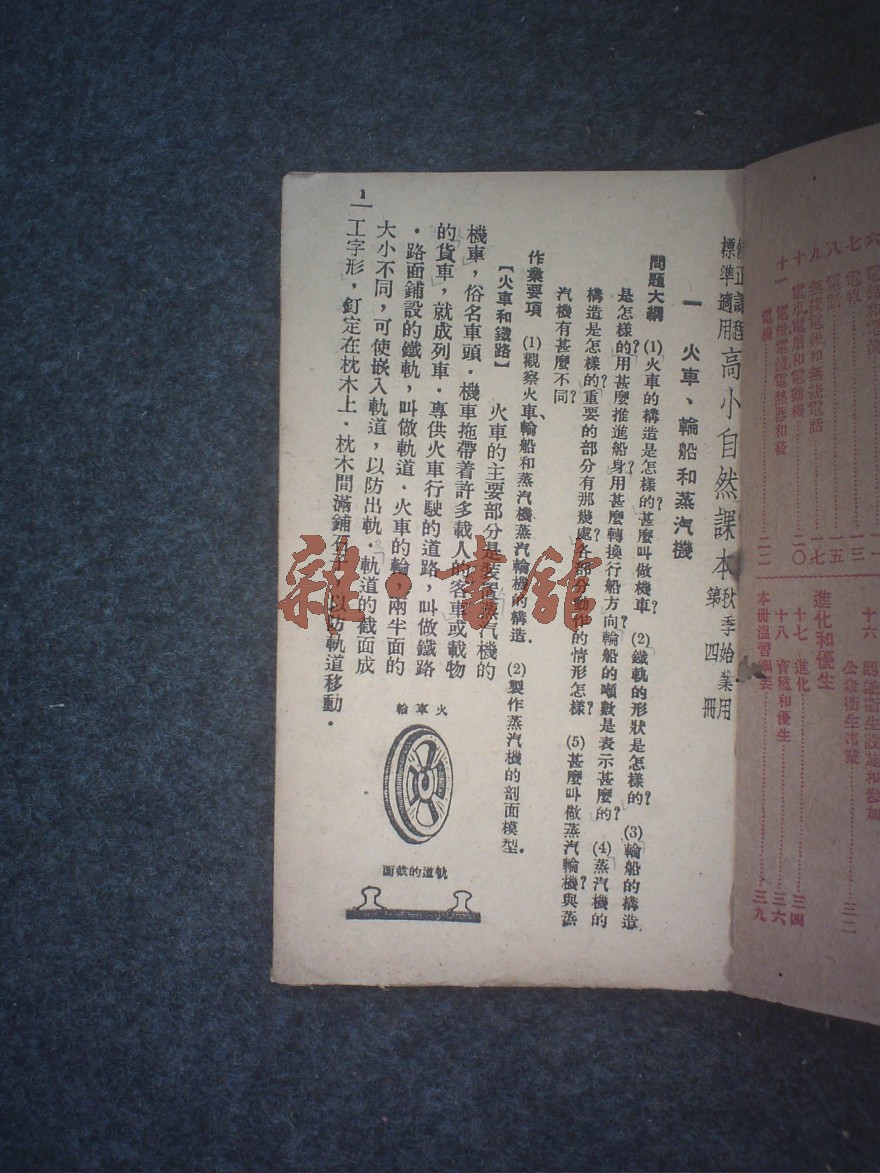 標準適用
高小自然課本
秋季始業用
第四冊
一　火車、輪船和蒸汽機
問題大綱　(1)火車的構造是怎樣的?甚麼叫做機車?　(2)鐵軌的形狀是怎樣的?　(3)輪船的構造
是怎樣的?用甚麼推進船身?用甚麼轉換行船方向?輪船的噸數是表示甚麼的?　(4)蒸汽機的
構造是怎樣的?重要的部分有那幾處?各部分動作的情形怎樣?　(5)甚麼叫做蒸汽輪機?與蒸
汽機有甚麼不同?
作業要項　(1)觀察火車、輪船和蒸汽機蒸汽輪機的構造.　(2)製作蒸汽機的剖面模型.
【火車和鐵路】　火車的主要部分是裝置蒸汽機的
機車,俗名車頭.機車拖帶着許多載人的客車或載物
的貨車,就成列車.專供火車行駛的道路,叫做鐵路
.路面鋪設的鐵軌,叫做軌道.火車的輪,兩半面的
大小不同,可使嵌入軌道,以防出軌.軌道的截面成
工字形,釘定在枕木上.枕木間滿鋪石子,以防軌道移動.
1
火車輪
軌道的截面
雜·書館
六
七　電報
八　電話　一五
九　無線電報和無線電話　一七
十　電車電扇和電動機　二〇
十一
二二
公衆衛生事業　三二
進化和優生
十七　進化　三四
十八　育種和優生　三六
本冊溫習綱要　三九